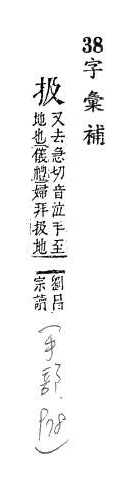 38字彙補
扱
又去急切音泣手至
地也儀禮婦拜扱地
劉昌
宗讀
(手部